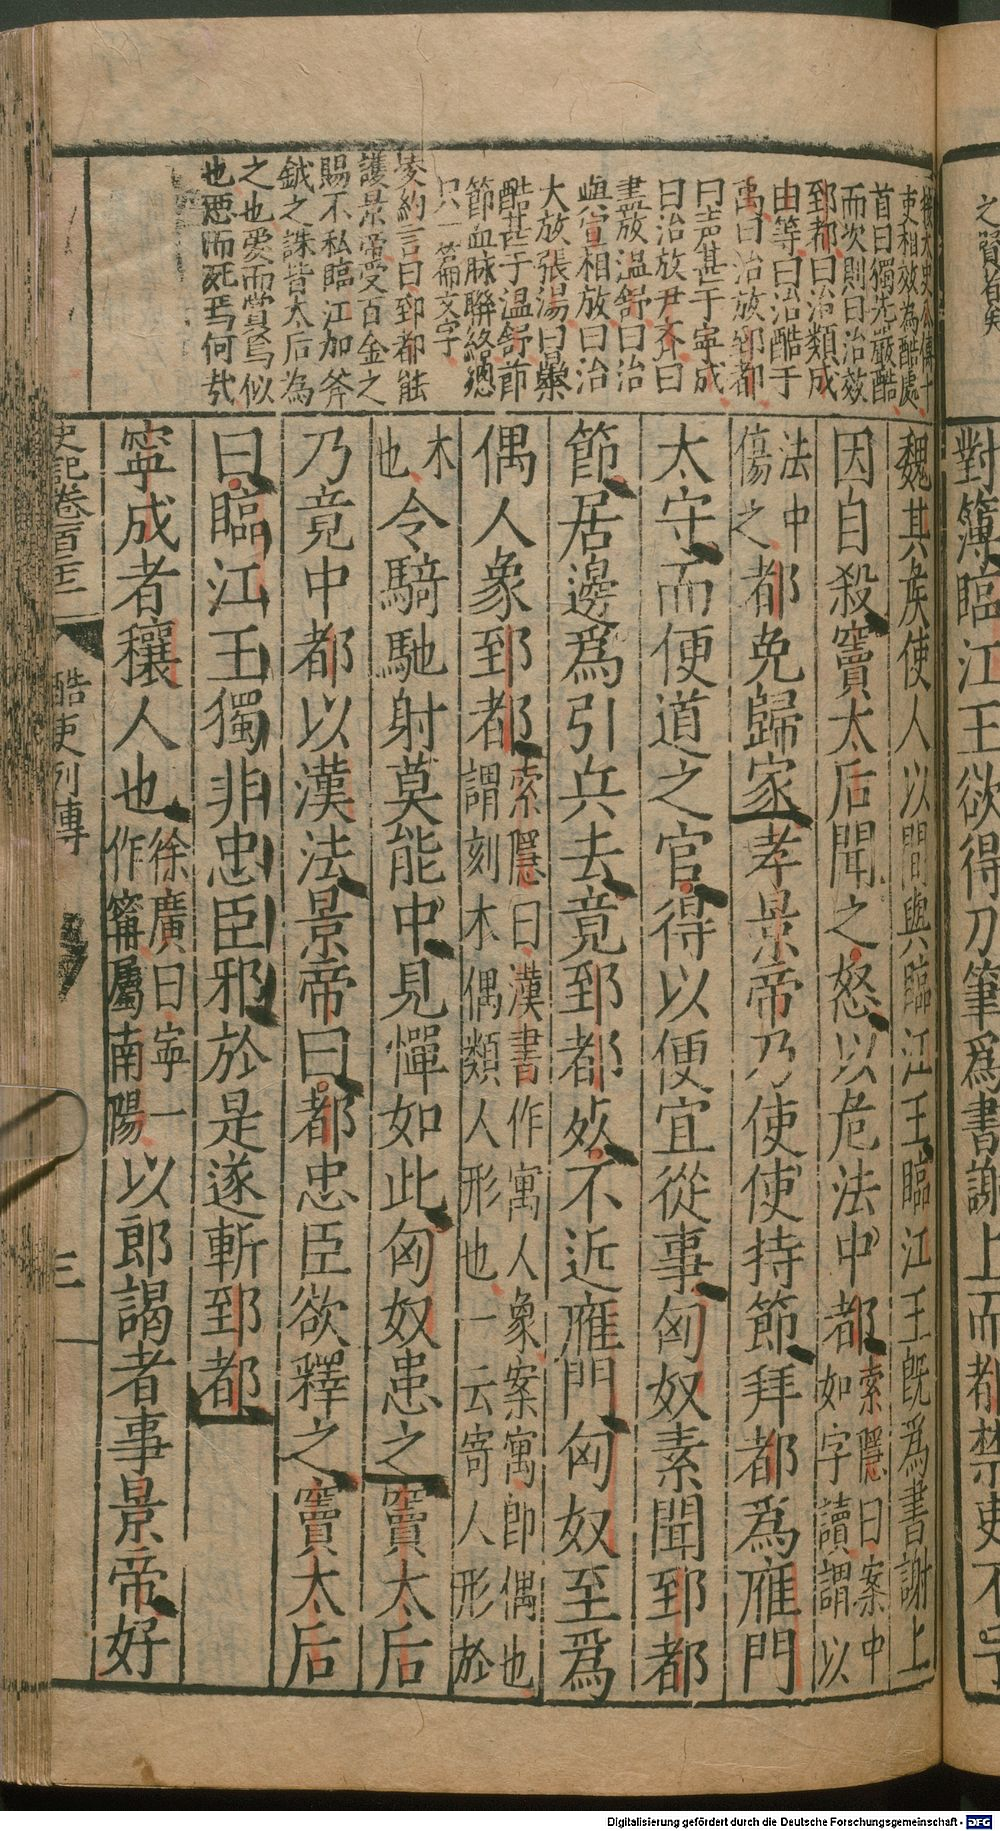 之贊者矣
對簿臨江王欲得刀筆爲書謝上而都禁吏不予
按太史公傳十
吏相效為酷處
首曰獨先嚴酷
而次則曰治效
郅都曰治類成
由等曰治酷于
禹曰治放郅都
曰声甚于寧成
曰治放尹齐曰
盡放温舒曰治
與宣相放曰治
大放張湯曰暴
酷甚于温舒節
節血脉聯絡總
只一篇文字
凌約言曰郅都能
護景帝受百金之
賜不私臨江加斧
鉞之誅皆太后為
之也愛而賞焉似
也惡而死焉何哉
魏其矦使人以閒與臨江王臨江王旣爲書謝上
因自殺竇太后聞之怒以危法中都索隱曰案中如字讀謂以
法中傷之都免歸家孝景帝乃使使持節拜都爲雁門
太守而便道之官得以便宜從事匈奴素聞郅都
節居邊爲引兵去竟郅都死不近雁門匈奴至爲
偶人象郅都索隱曰漢書作寓人象案寓卽偶也謂刻木偶類人形也一云寄人形於
木也令騎馳射莫能中見憚如此匈奴患之竇太后
乃竟中都以漢法景帝曰都忠臣欲釋之竇太后
曰臨江王獨非忠臣邪於是遂斬郅都
寧成者穰人也徐廣曰寧一作甯屬南陽以郎謁者事景帝好
史記卷百二十二 酷吏列傳 三
Digitalisierung gefördert durch die Deutsche Forschungsgemeinschaft - DFG